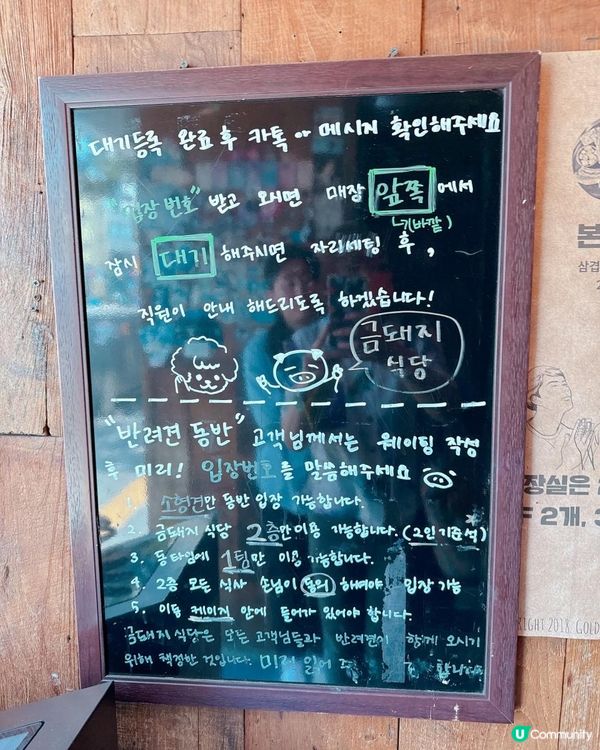 대기등록 완료 후 카톡 메시지 확인해주세요
"입장 번호" 받고 오시면 매장 앞쪽 에서
(바깥)
잠시 대기 해주시면 자리세팅 후,
직원이 안내 해드리도록 하겠습니다!
금돼지
식당
"반려견 동반" 고객님께서는 웨이팅 작성
후 미리! 입장번호를 말씀해주세요
1. 소형견만 동반 입장 가능합니다.
2. 금돼지 식당 2층만 이용 가능합니다. (2인 기준석)
3. 동타임에 1팀만 이용 가능합니다.
4. 2층 모든 식사 손님이 동의 해주셔야 입장 가능
5. 이동 케이지 안에 들어가 있어야 합니다.
금돼지 식당은 모든 고객님들과 반려견이 함께 오시기
위해 책정한 것입니다. 미리 읽어
본
삼겹
장실은
2개, 3
RIGHT 2018. GOLD
U Community